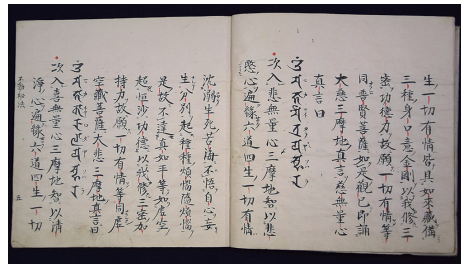 生一切有情皆具如來藏備
三種身口意金剛以我修三
蜜功德力故願一切有情等
同普賢菩薩如是觀已即誦
大悲三摩地真言慈無量心
真言曰
次入悲無量心三摩地智以悲
愍心遍緣六道四生一切有情
沈溺生死苦海不悟自心妄
生分別起種種煩惱隨煩惱
是故不達真如平等如虛空
超恒沙功德以我修三蜜加
持力故願一切有情等同虛
空藏菩薩大悲三摩地真言曰
次入喜無量心三摩地智以清
淨心遍緣六道四生一切
五